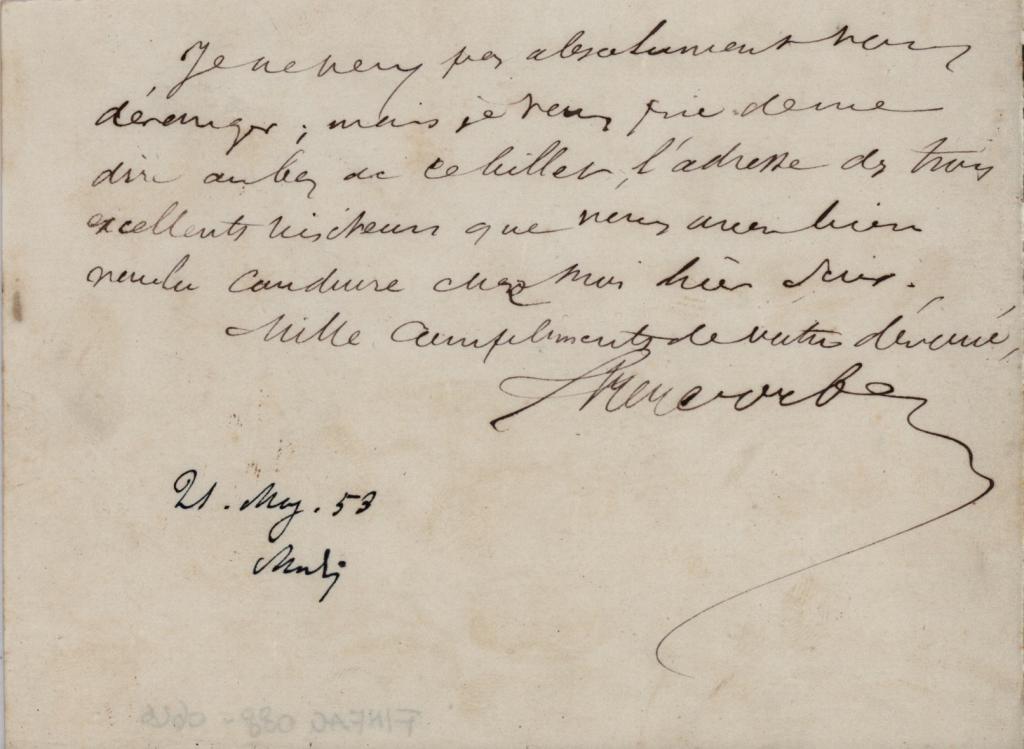 Je ne veux pas absolument vous
déranger ; mais je veux que de me
dire au bas de ce billet, l'adresse des trois
excellents visiteurs que vous avez bien
voulu conduire chez moi hier soir.
Mille compliments de votre dévoué,
21. May. 53